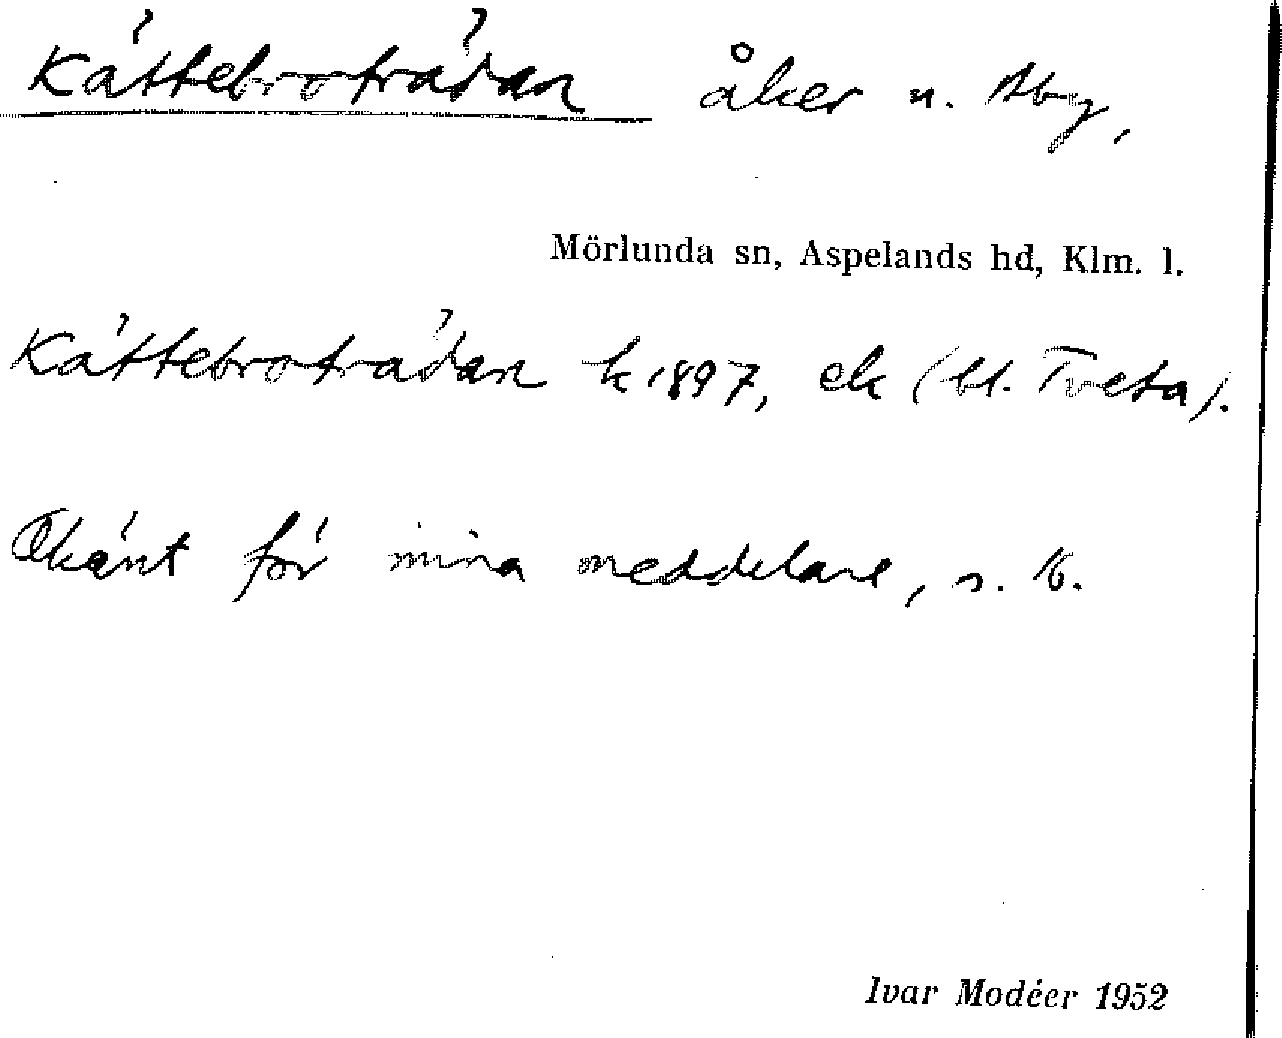 Kättebroträdan åker u. Åby,
Mörlunda sn, Aspelands hd, Klm. l.
Kättebroträdan k 1897, ek (bl. Tveta).
Okänt för mina meddelare, s. 16.
Ivar Modéer 1952